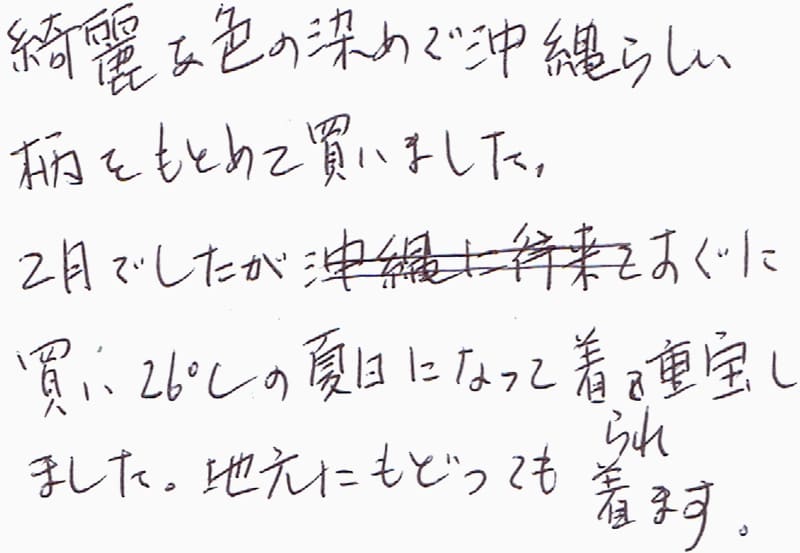 綺麗な色の染めで沖縄らしい
柄をもとめて買いました。
2月でしたが沖縄に待来てすぐに
買い、26℃の夏日になって着る重宝し
ました。地元にもどっても着られます。